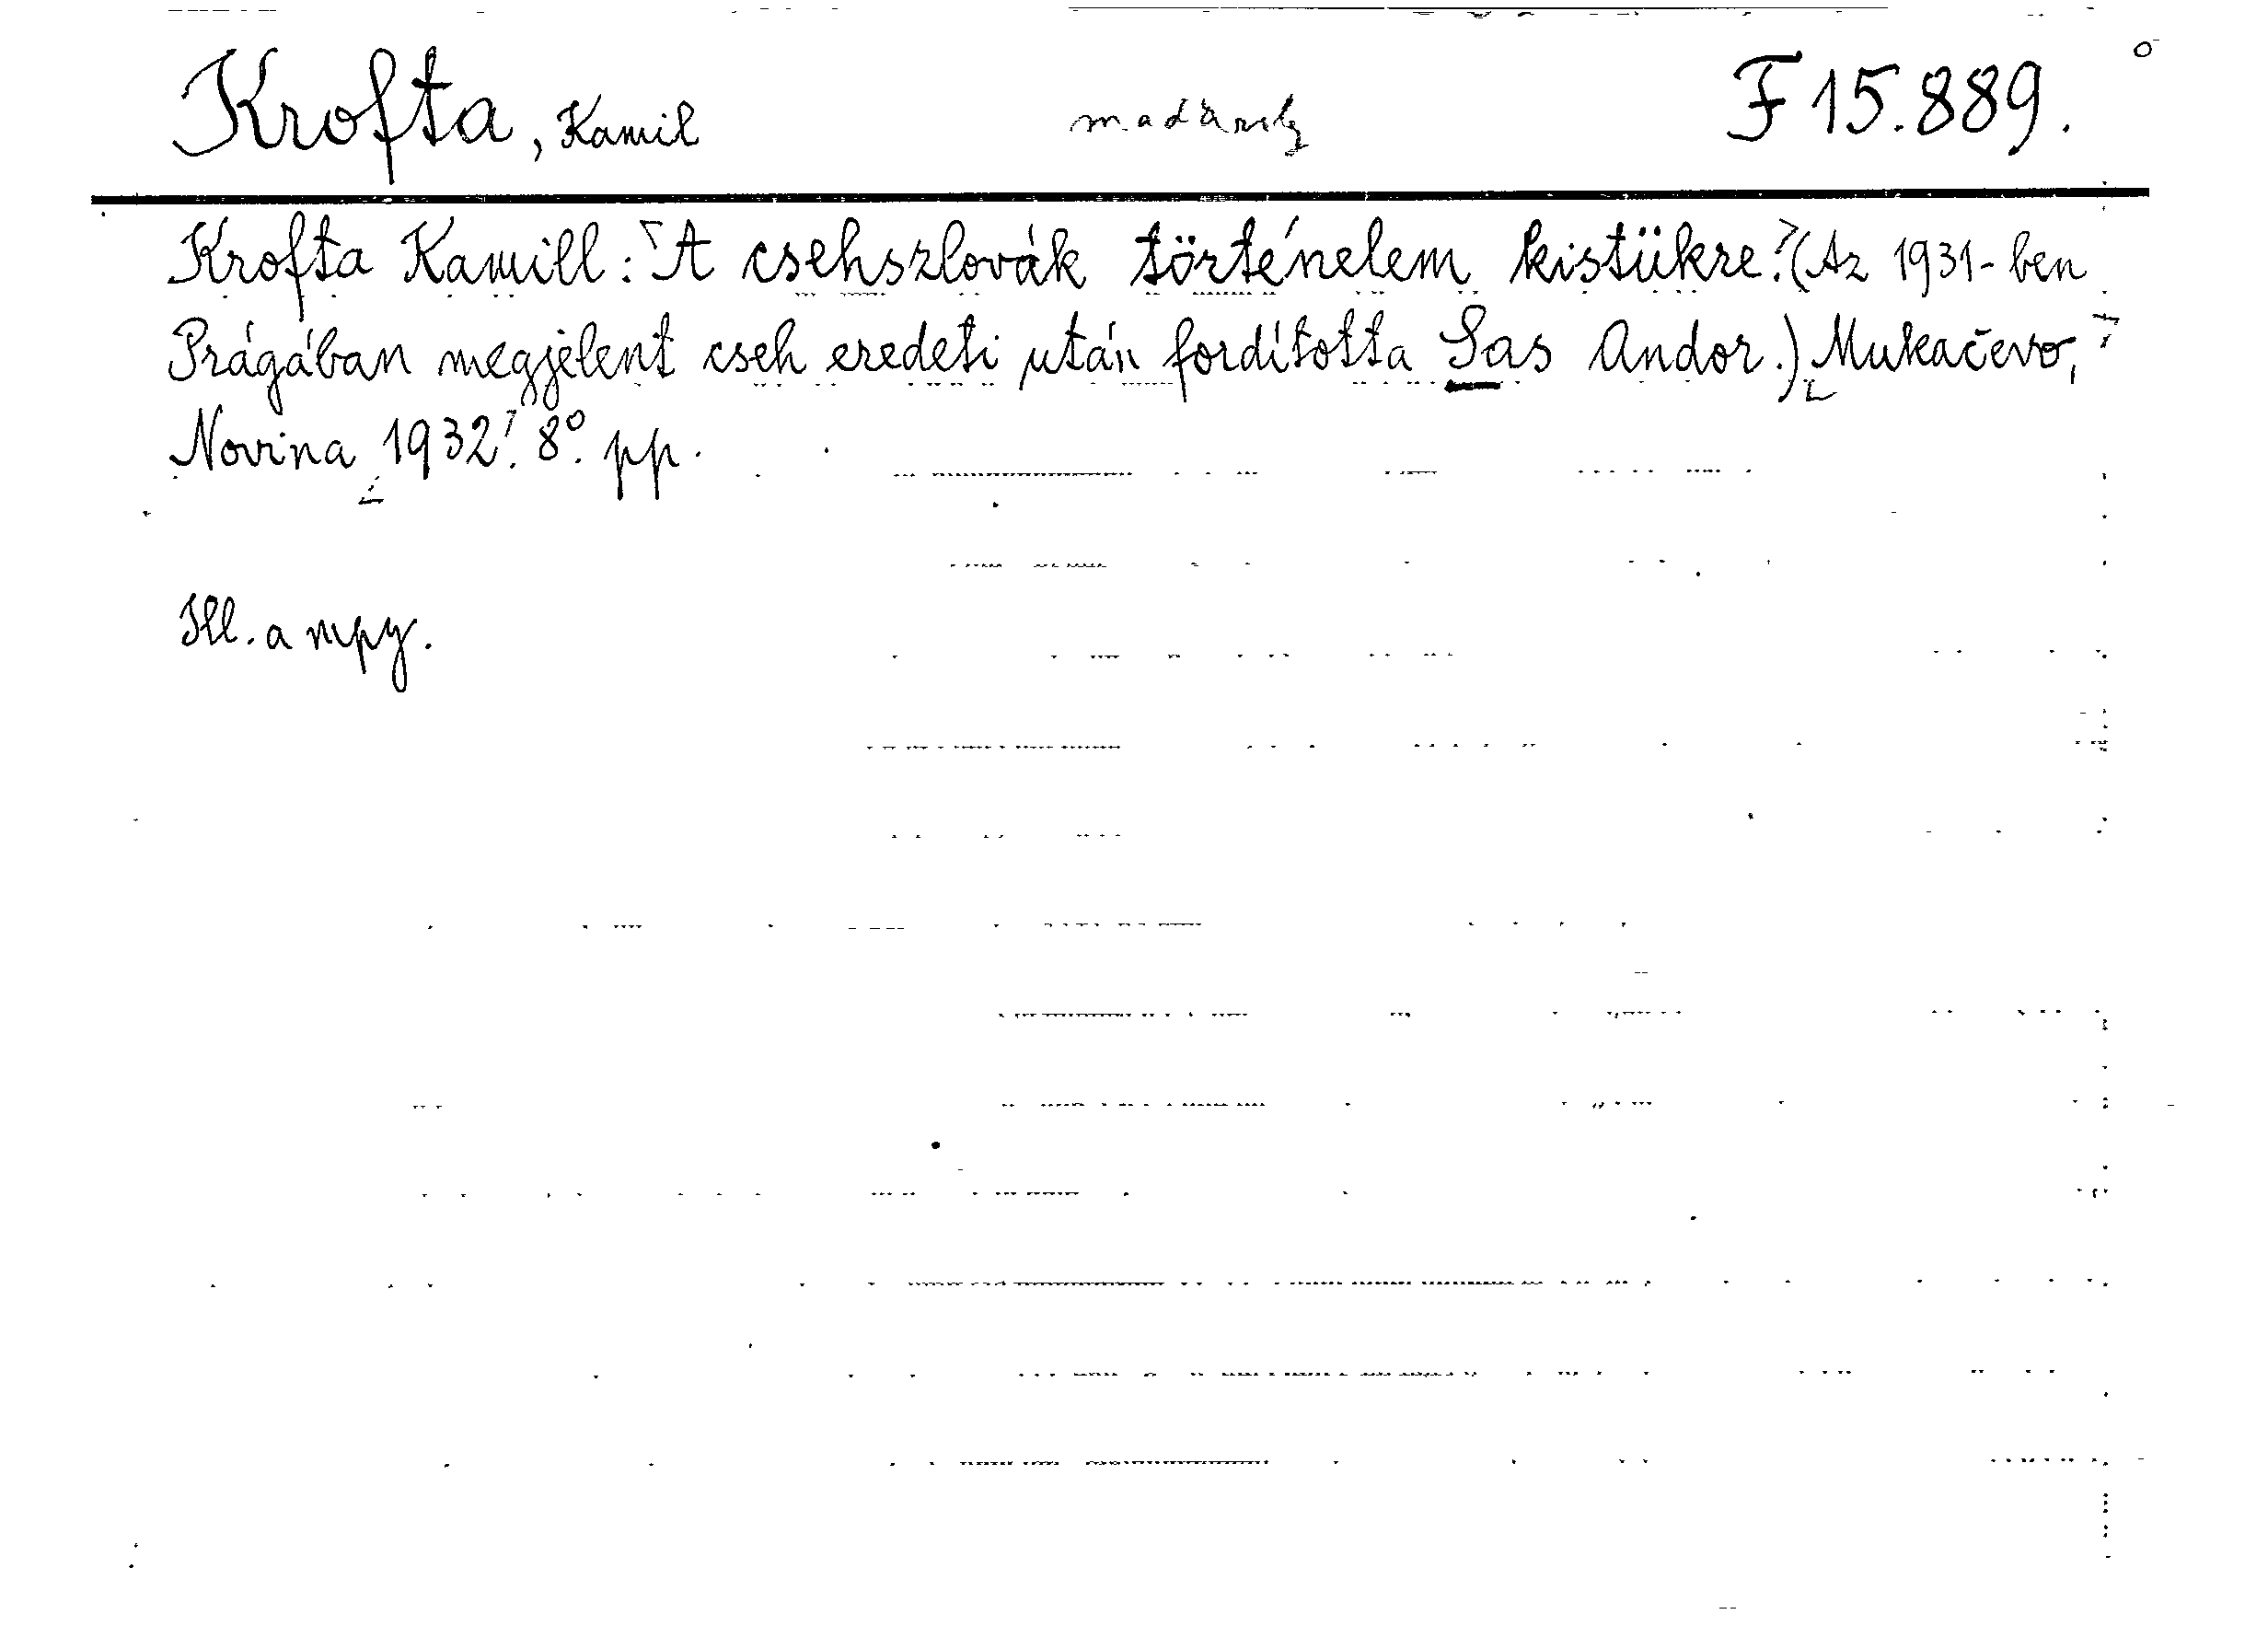 Krofta, Kamil maďarsky F 15.889.
Krofta Kamill: A csehszlovák történelem kistükre. (Az 1931-ben
Prágában megjelent cseh eredeti után fordította Sas Andor.) Mukačevo,
Novina 1932. 8° pp.
Ill. a mpy.